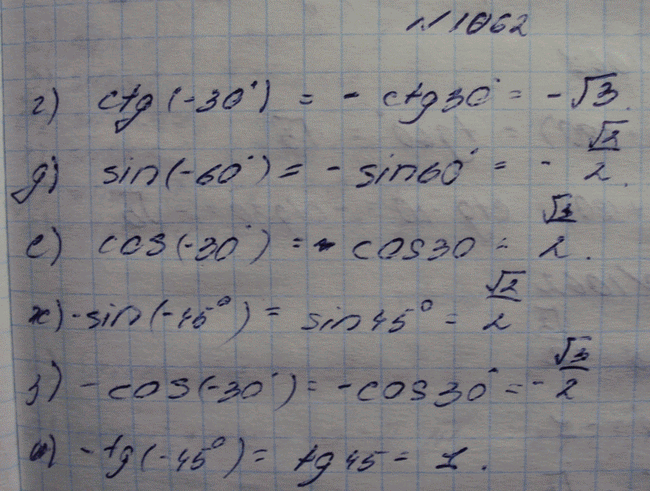 № 1062
г) ctg(-30°) = - ctg30° = -√3.
д) sin(-60°) = - sin60° = - √2/2.
е) cos(-30°) = cos30 = √3/2.
ж) -sin(-45°) = sin45° = √2/2
з) -cos(-30°) = -cos30° = - √3/2
и) -tg(-45°) = tg45 = 1.